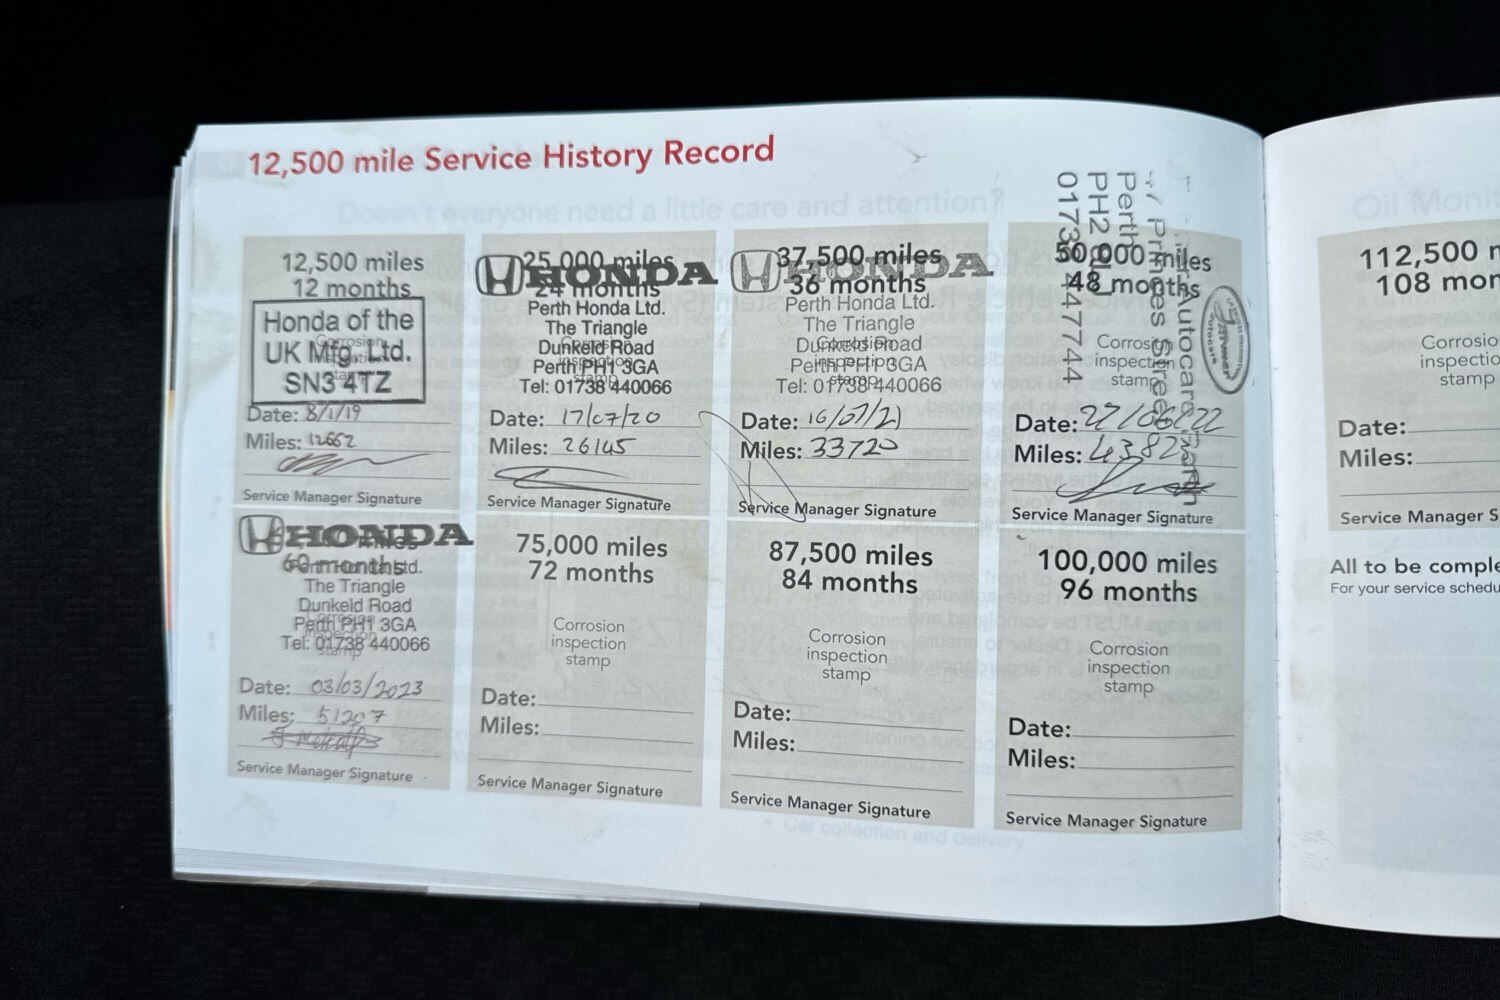 12,500 mile Service History Record
Doesn't everyone need a little care and attention?
12,500 miles
12 months
Honda of the
UK Mfg. Ltd.
SN3 4TZ
Corrosion
inspection
stamp
Date: 8/1/19
Miles: 12662
Service Manager Signature
25,000 miles
24 months
HONDA
Perth Honda Ltd.
The Triangle
Dunkeld Road
Perth PH1 3GA
Tel: 01738 440066
Corrosion
inspection
stamp
Date: 17/07/20
Miles: 26145
Service Manager Signature
37,500 miles
36 months
HONDA
Perth Honda Ltd.
The Triangle
Dunkeld Road
Perth PH1 3GA
Tel: 01738 440066
Corrosion
inspection
stamp
Date: 16/07/21
Miles: 33720
Service Manager Signature
50,000 miles
48 months
Autocare
Princes Street
Perth
PH2
447744
Corrosion
inspection
stamp
Date: 27/06/22
Miles: 4382
Service Manager Signature
HONDA
60 months
Perth Honda Ltd.
The Triangle
Dunkeld Road
Perth PH1 3GA
Tel: 01738 440066
Corrosion
inspection
stamp
Date: 03/03/2023
Miles: 51207
Service Manager Signature
75,000 miles
72 months
Corrosion
inspection
stamp
Date:
Miles:
Service Manager Signature
87,500 miles
84 months
Corrosion
inspection
stamp
Date:
Miles:
Service Manager Signature
100,000 miles
96 months
Corrosion
inspection
stamp
Date:
Miles:
Service Manager Signature
Car collection and delivery
Oil Monit
112,500 m
108 mon
Corrosio
inspectio
stamp
Date:
Miles:
Service Manager S
All to be comple
For your service schedu